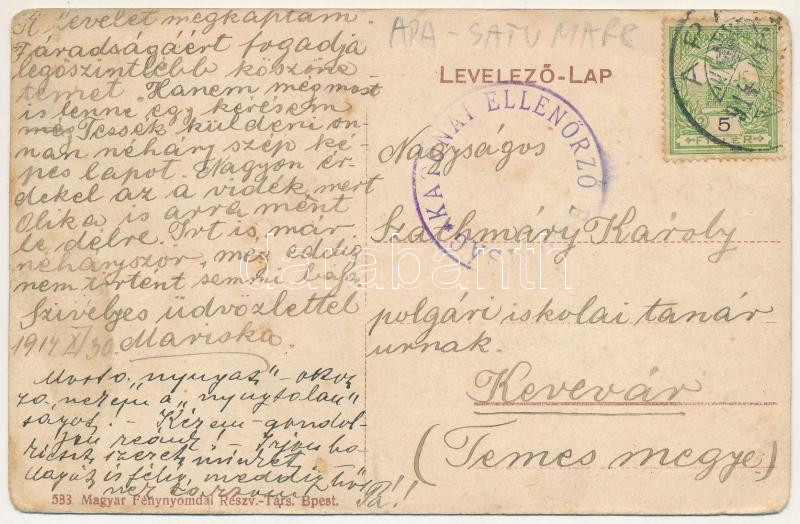 A levelet megkaptam.
Fáradságáért fogadja
legőszintébb köszöne-
temet Hanem még most
is lenne egy kérésem
még Tessék küldeni on-
nan néhány szép ké-
pes lapot. Nagyon ér-
dekel az a vidék, mert
Olika is arra ment
le délre. Irt is, már
néhányszor, még eddig
nem történt semmi baja
Szivélyes üdvözlettel
1914 XI/30. Mariska.
"nyugat" -
a "nyugtalan"
ságot. - Kérem - gondol-
jon reánk! -
Pá!!
583 Magyar Fénynyomdai Részv.-Társ. Bpest.
APA - SATU MARE
LEVELEZŐ-LAP
KATONAI ELLENŐRZŐ
5
FILLÉR
APA
Nagyságos
Szathmáry Károly
polgári iskolai tanár
urnak.
Kevevár
(Temes megye)
darabanth